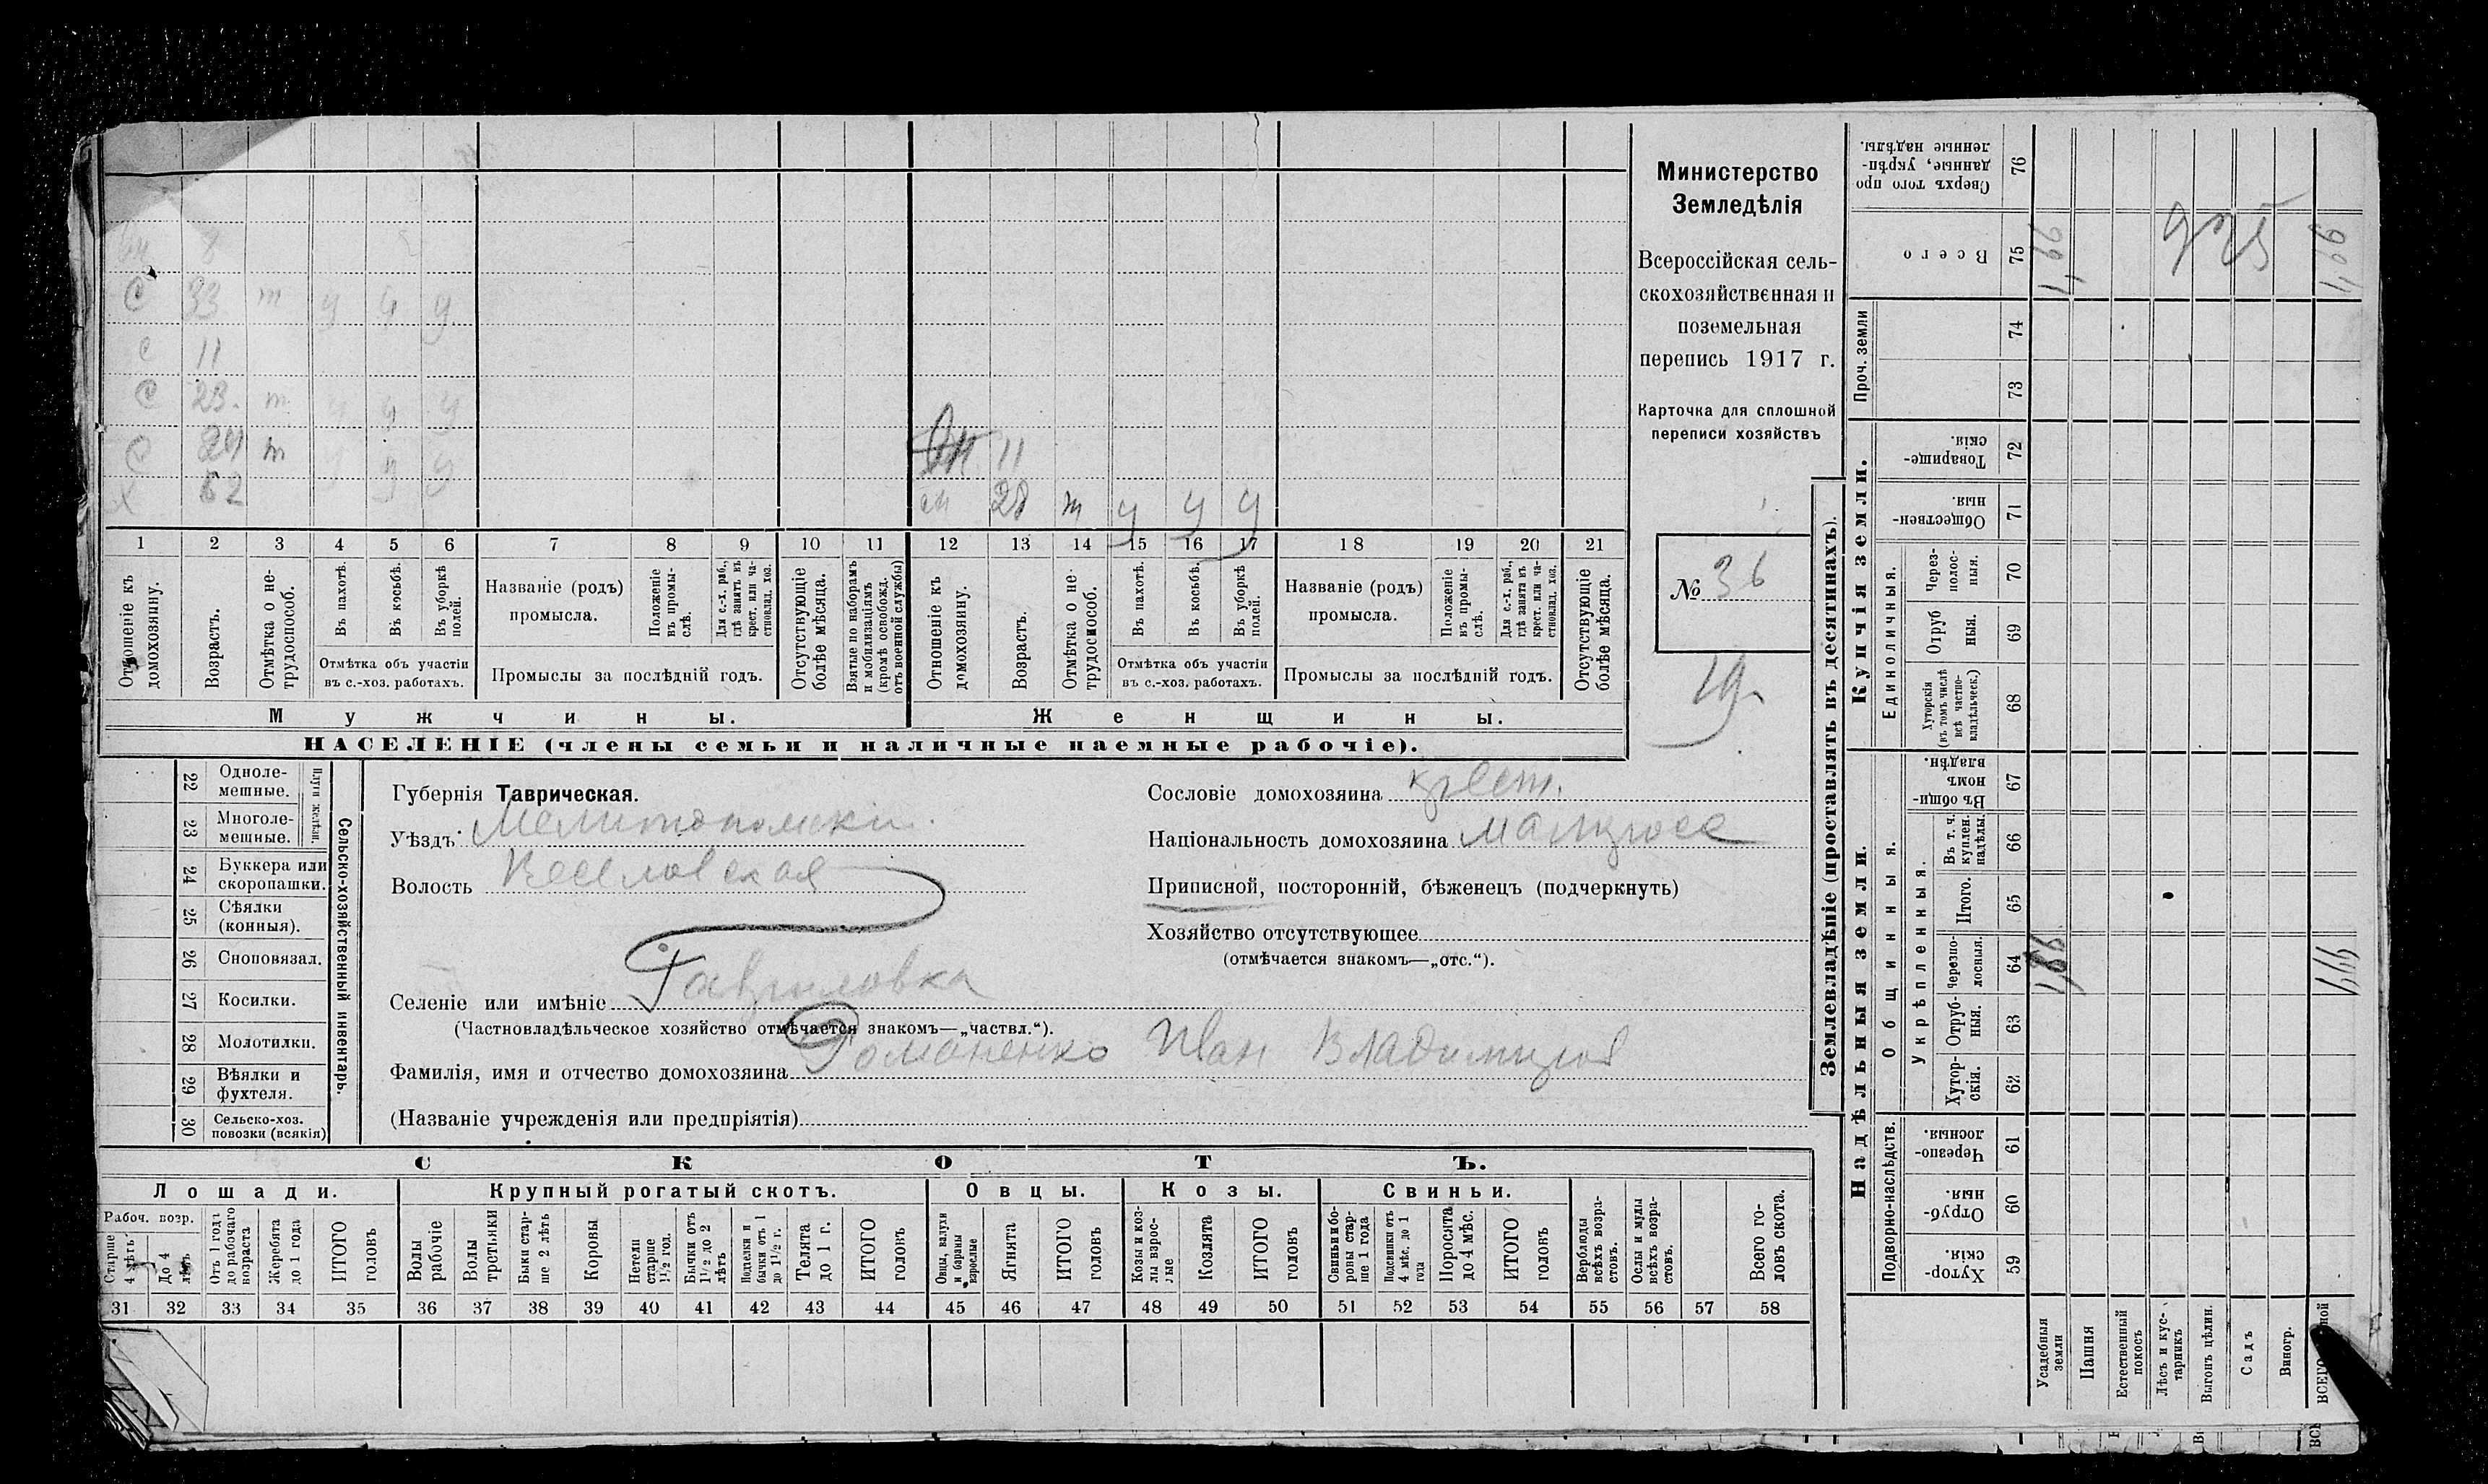 вн 8
С 33 т у у у
с 11
С 23. т у у у
С 24 т у у у
Х 62
11
сн 28 т у у у
1 2 3 4 5 6 7 8 9 10 11 12 13 14 15 16 17 18 19 20 21
Отношеніе къ домохозяину.
Возрастъ.
Отмѣтка о не-
трудоспособ.
Въ пахотѣ.
Въ косьбѣ.
Въ уборкѣ
полей.
Отмѣтка объ участіи
въ с.-хоз. работахъ.
Названіе (родъ)
промысла.
Положеніе
въ промы-
слѣ.
Для с.-х. раб.,
гдѣ занятъ въ
крест. или ча-
стновлад. хоз.
Промыслы за послѣдній годъ.
Отсутствующіе
болѣе мѣсяца.
Взятые по наборамъ
и мобилизаціямъ
(кромѣ освобожд.
отъ военной службы)
Отношеніе къ
домохозяину.
Возрастъ.
Отмѣтка о не-
трудоспособ.
Въ пахотѣ.
Въ косьбѣ.
Въ уборкѣ
полей.
Отмѣтка объ участіи
въ с.-хоз. работахъ.
Названіе (родъ)
промысла.
Положеніе
въ промы-
слѣ.
Для с.-х. раб.,
гдѣ занята въ
крест. или ча-
стновлад. хоз.
Промыслы за послѣдній годъ.
Отсутствующіе
болѣе мѣсяца.
Мужчины.
Женщины.
НАСЕЛЕНІЕ (члены семьи и наличные наемные рабочіе).
Министерство
Земледѣлія
Всероссійская сель-
скохозяйственная и
поземельная
перепись 1917 г.
Карточка для сплошной
переписи хозяйствъ
№ 36
19
22 Одноле-
мешные.
23 Многоле-
мешные.
Плуги желѣзн.
24 Буккера или
скоропашки.
25 Сѣялки
(конныя).
26 Сноповязал.
27 Косилки.
28 Молотилки.
29 Вѣялки и
фухтеля.
30 Сельско-хоз.
повозки (всякія)
Сельско-хозяйственный инвентарь.
Губернія Таврическая.
Уѣздъ Мелитопольскій.
Волость Веселовская
Селеніе или имѣніе Гавриловка
(Частновладѣльческое хозяйство отмѣчается знакомъ—„частвл.“).
Фамилія, имя и отчество домохозяина Романенко Иван Владимиров
(Названіе учрежденія или предпріятія)
Сословіе домохозяина крест.
Національность домохозяина малоросс
Приписной, посторонній, бѣженецъ (подчеркнуть)
Хозяйство отсутствующее
(отмѣчается знакомъ—„отс.“).
СКОТЪ.
Лошади.
Рабоч. возр.
Старше
4 лѣтъ
До 4
лѣтъ
Отъ 1 года
до рабочаго
возраста
Жеребята
до 1 года
ИТОГО
головъ
Крупный рогатый скотъ.
Волы
рабочіе
Волы
третьяки
Быки стар-
ше 2 лѣтъ
Коровы
Нетели
старше
1½ год.
Бычки отъ
1½ до 2
лѣтъ
Подтелки и
бычки отъ 1
до 1½ г.
Телята
до 1 г.
ИТОГО
головъ
Овцы.
Овцы, валухи
и бараны
взрослые
Ягнята
ИТОГО
головъ
Козы.
Козы и коз-
лы взрос-
лые
Козлята
ИТОГО
головъ
Свиньи.
Свиньи и бо-
ровы стар-
ше 1 года
Подсвинки отъ
4 мѣс. до 1
года
Поросята
до 4 мѣс.
ИТОГО
головъ
Верблюды
всѣхъ возра-
стовъ.
Ослы и мулы
всѣхъ возра-
стовъ.
Всего го-
ловъ скота.
31 32 33 34 35 36 37 38 39 40 41 42 43 44 45 46 47 48 49 50 51 52 53 54 55 56 57 58
Землевладѣніе (проставлять въ десятинахъ).
Сверхъ того про
данные, укрѣп-
ленные надѣлы.
76
Всего
75
925
Проч. земли
74
73
Купчія земли.
Товарище-
скія.
72
Обществен-
ныя.
71
Единоличныя.
Через-
полос-
ныя.
70
Отруб
ныя.
69
Хуторскія
(въ томъ числѣ
всѣ частно-
владѣльческ.)
68
Надѣльныя земли.
Въ общи-
номъ
владѣн.
67
Общинныя.
Укрѣпленныя.
Въ т. ч.
куплен.
надѣлы.
66
Итого.
65
Черезпо-
лосныя.
64
Отруб-
ныя.
63
Хутор-
скія.
62
Подворно-наслѣдств.
Черезпо-
лосныя.
61
Отруб-
ныя.
60
Хутор-
скія.
59
Усадебныя
земли
Пашня
Естественный
покосъ
Лѣсъ и кус-
тарникъ
Выгонъ цѣлин.
Садъ
Виногр.
ВСЕГО